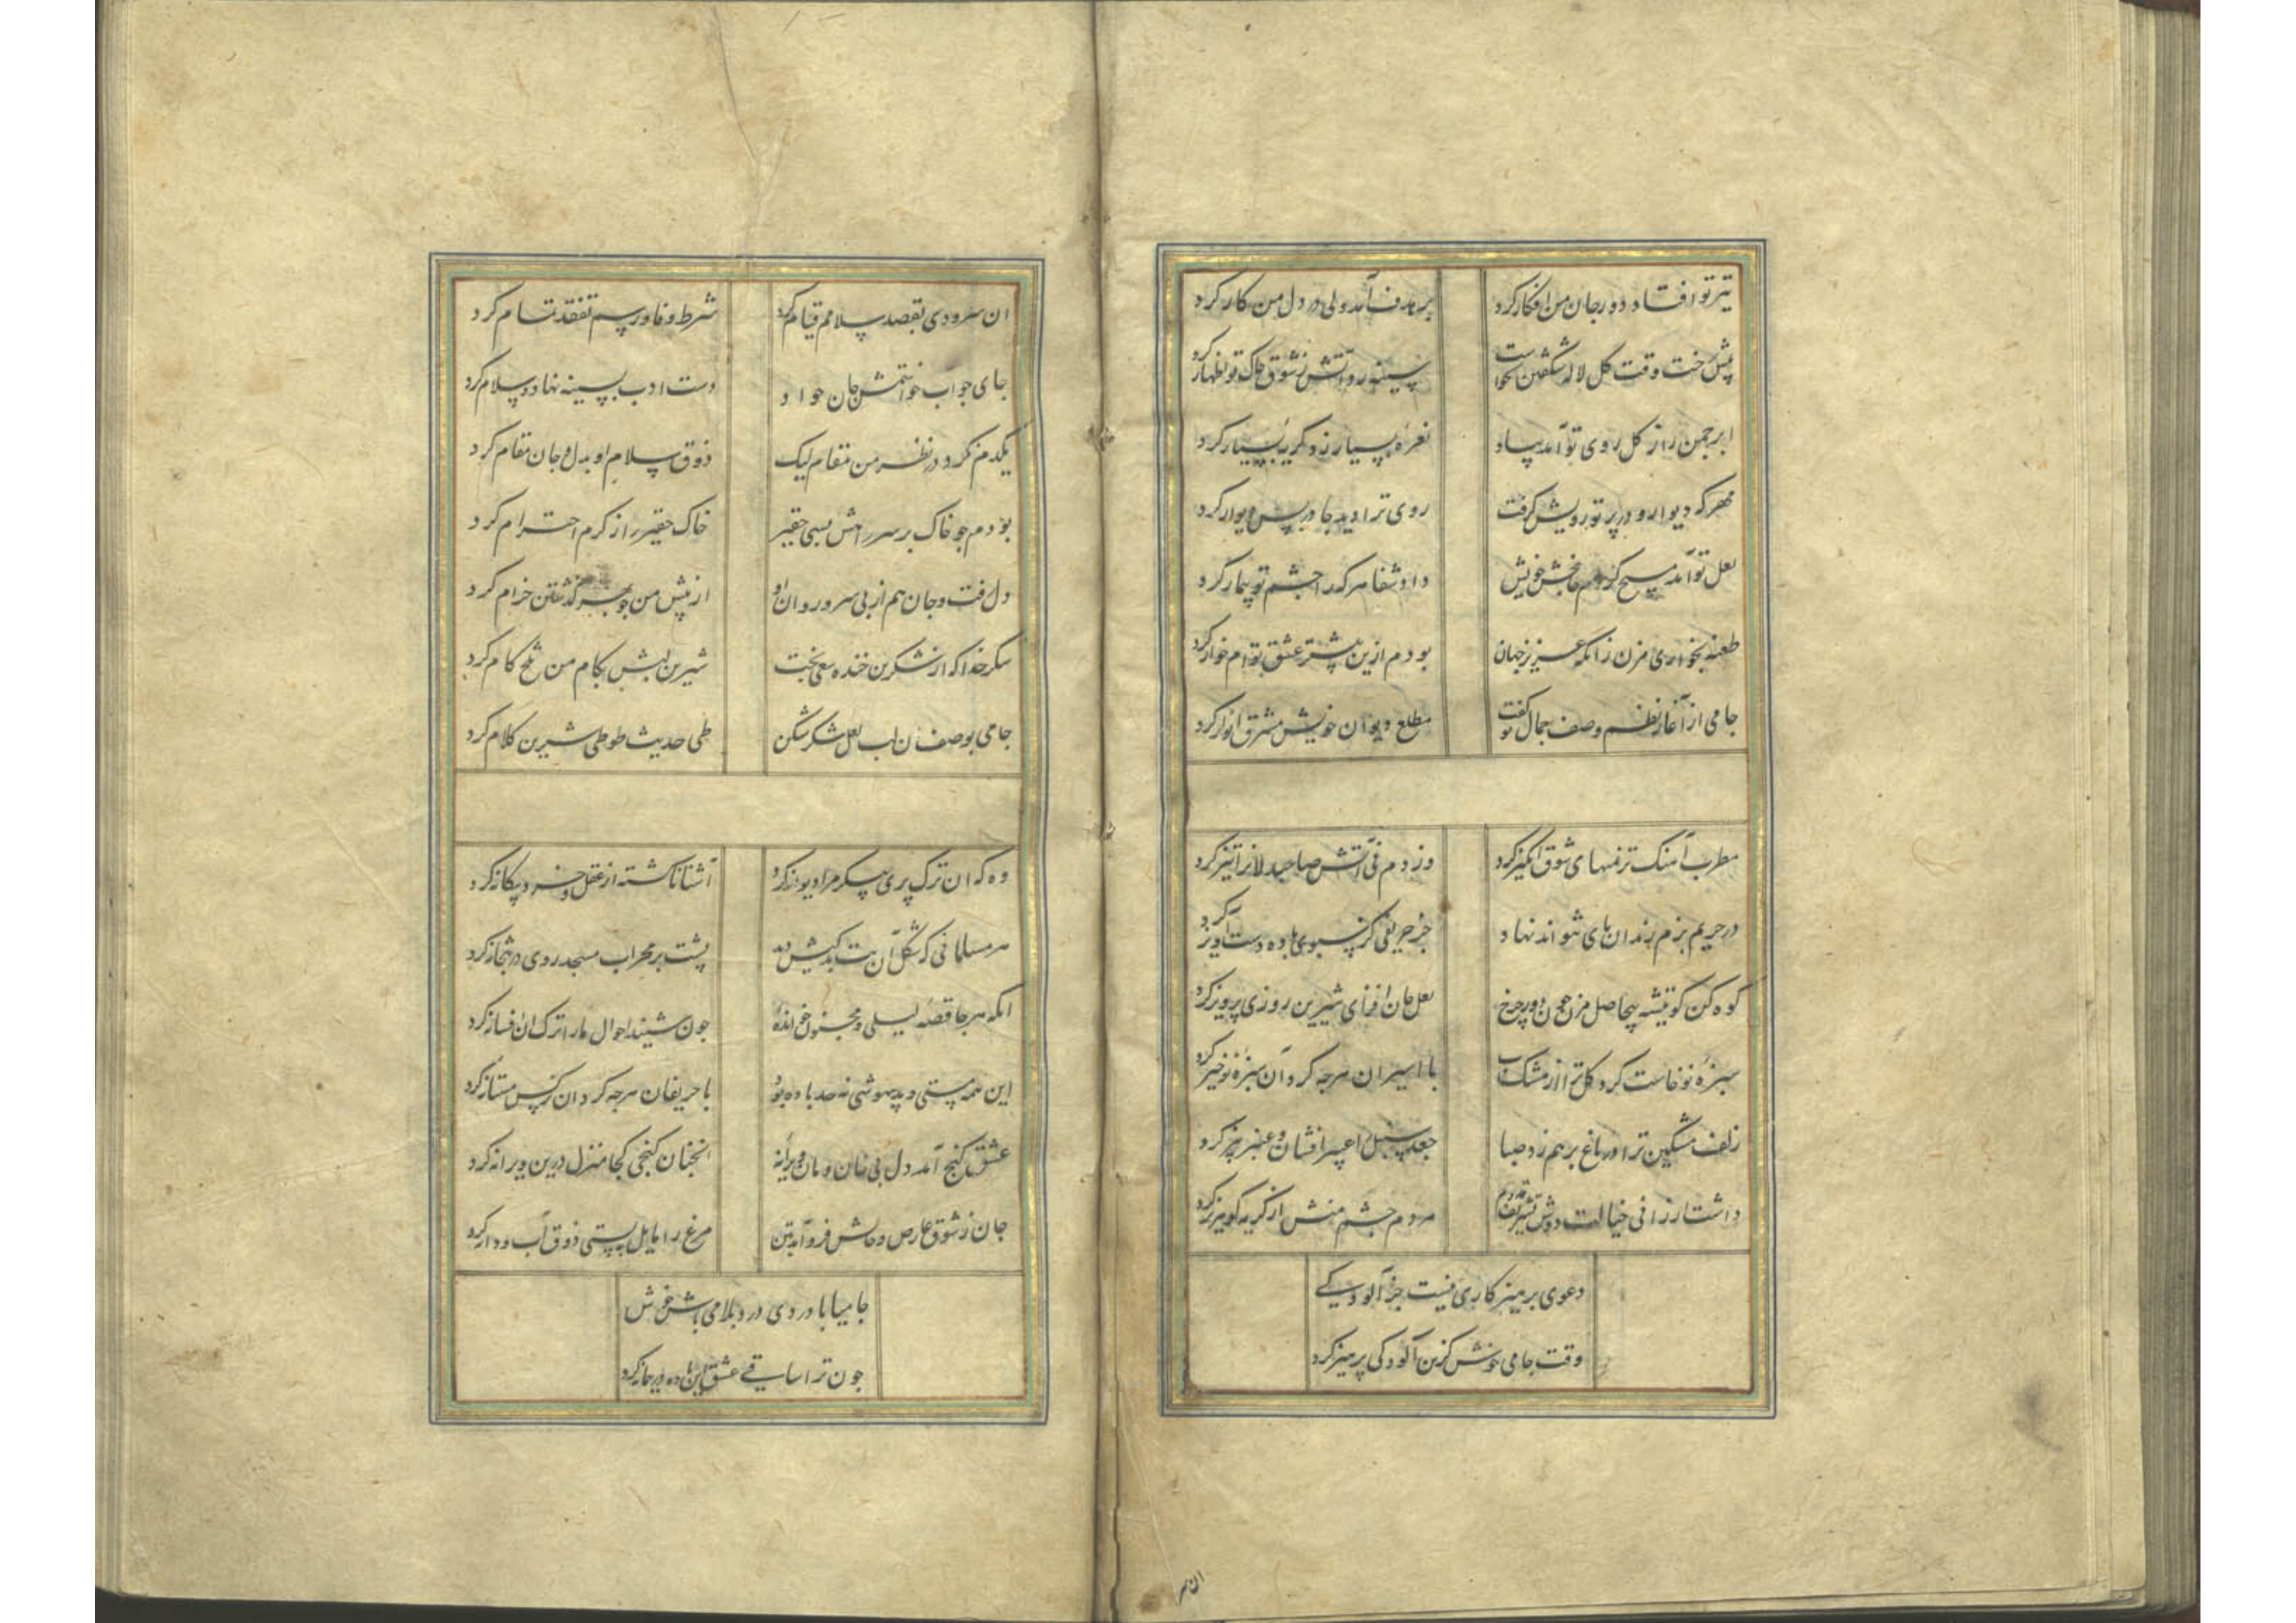 تیر تو افتاد دور جان من افکار کرد
بر هدف آمد ولی در دل من کار کرد
پیش رخت وقت گل لاله شکفتن نخواست
سینه رو آتش ز شوق چاک تو اظهار کرد
ابر چمن را ز گل روی تو آمد بیاد
نعرهٔ بسیار زد گریهٔ بسیار کرد
مهر که دیوار و در پرتو رویش گرفت
روی ترا دید جا در پس دیوار کرد
لعل تو آمد مسیح کز دم جانبخش خویش
داد شفا هر که را چشم تو بیمار کرد
طعنه بخواری مزن زانکه عزیز جهان
بودم ازین پیشتر عشق توام خوار کرد
جامی از آغاز نظم وصف جمال تو گفت
مطلع دیوان خویش مشرق انوار کرد
مطرب آهنگ ترنمهای شوق انگیز کرد
وز دم نی آتش صاحبدلانرا تیز کرد
در حریم بزم رندان پای نتواند نهاد
جز حریفی کز سبوی باده دست آویز کرد
کوه کن کو تیشه بیحاصل مزن چون دور چرخ
لعل جان افزای شیرین روزی پرویز کرد
سبزهٔ نوخاست گرد گل ترا از مشک ناب
با اسیران هرچه کرد آن سبزهٔ نوخیز کرد
زلف مشگین ترا در باغ برهم زد صبا
جعد سنبل را عبیر افشان و عنبر بیز کرد
داشت ارزانی خیالت دوش تشریف قدوم
مردم چشم منش از گریه گوهر ریز کرد
دعوی پرهیزکاری نیست جز آلودگی
وقت جامی خوش کزین آلودگی پرهیز کرد
ان سر
ان سرو دی بقصد سلامم قیام کرد
شرط وفا و رسم تفقد تمام کرد
جای جواب خواستمش جان خود
دست ادب بسینه نهاد و سلام کرد
یکدم نکرد در نظر من مقام لیک
ذوق سلام او بدل و جان مقام کرد
بودم چو خاک بر سر راهش بسی حقیر
خاک حقیر را ز کرم احترام کرد
دل رفت و جان هم از پی سرو روان او
از پیش من چو بهر گذشتن خرام کرد
شکر خدا که از شکرین خنده سعی بخت
شیرین لبش بکام من تلخ کام کرد
جامی بوصف ان لب لعل شکر شکن
طی حدیث طوطی شیرین کلام کرد
وه که ان ترک پری پیکر مرا دیوانه کرد
آشنا ناگشته از عقل و خرد بیگانه کرد
هر مسلمانی که شکل آن بت بدکیش دید
پشت بر محراب مسجد روی در بتخانه کرد
انکه هر جا قصهٔ لیلی و مجنون خواندهٔ
چون شنید احوال ما را ترک ان افسانه کرد
این همه مستی و بیهوشی نه حد باده بود
با حریفان هرچه کرد ان نرگس مستانه کرد
عشق گنج آمد دل بی خان و مان ویرانهٔ
انچنان گنجی کجا منزل درین ویرانه کرد
جان ز شوق عارض و خالش فرو آمد بتن
مرغ را مایل به پستی ذوق آب و دانه کرد
جامیا با دردی درد بلا می باش خوش
چون ترا ساقی عشق این باده در پیمانه کرد